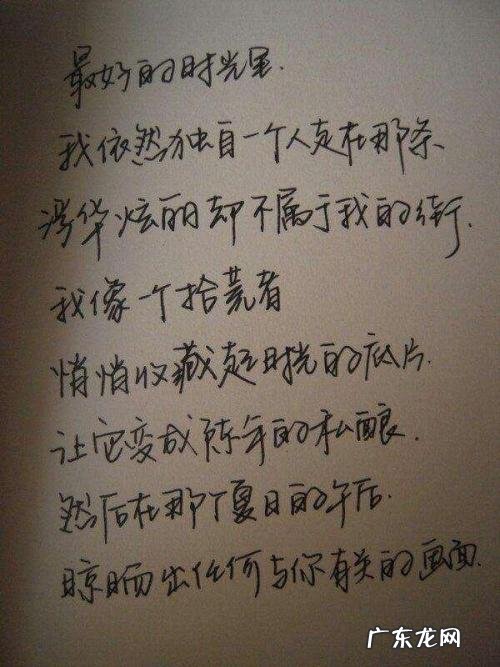 最好的时光里.
我依然独自一个人走在那条
浮华炫丽却不属于我的街.
我像一个拾荒者
悄悄收藏起时光的底片.
让它变成陈年的私酿.
然后在那个夏日的午后.
晾晒出任何与你有关的画面.
广东龙网